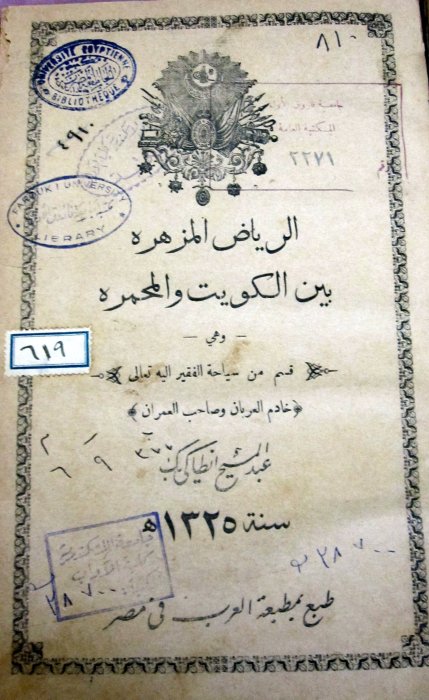 ٨١٠
UNIVERSITÉ EGYPTIENNE
BIBLIOTHÈQUE
٤٩١٠
جامعة فاروق الأول
المكتبة العامة
رقم
٢٢٧١
FAROUK I UNIVERSITY
LIBRARY
الرياض المزهره
بين الكويت والمحمره
— وهي —
٦١٩
قسم من سياحة الفقير اليه تعالى
﴿خادم العربان وصاحب العمران﴾
عبد المسيح انطاكي بك
سنة ١٣٢٥ هـ
جامعة الإسكندرية
٣٨٧٠٠
٣٨٧٠٠
طبع بمطبعة العرب في مصر